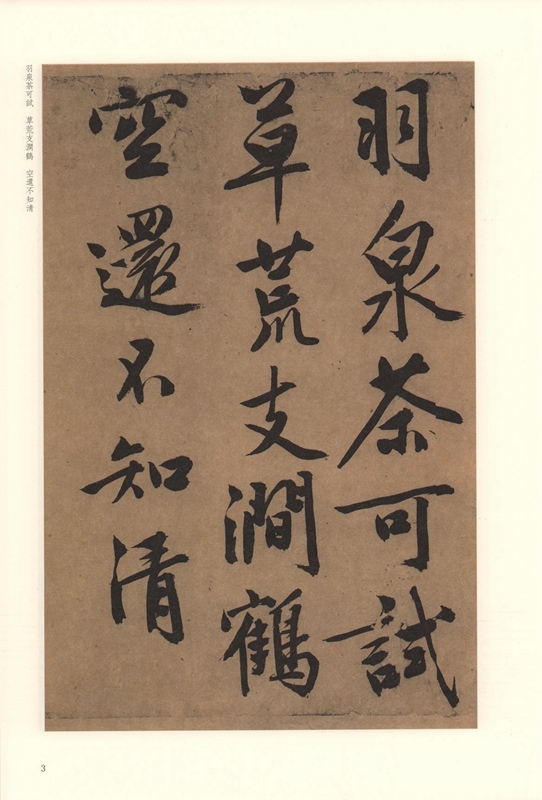 羽泉茶可試
草荒支澗鶴
空還不知清
羽泉茶可試 草荒支澗鶴 空還不知清
3